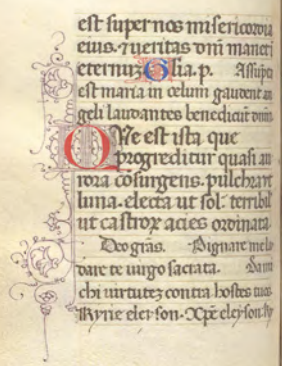 est super nos misericordia
eius. ⁊ ueritas dñi manet i
eternuz Glia. p. Assupta
est maria in celum gaudent an
geli laudantes benedicūt dnm.
Que est ista que
progreditur quasi au
rora cōsurgens. pulchra ut
luna. electa ut sol. terribil
ut castroꝝ acies ordinata.
Deo grās. Dignare me lau
dare te uirgo sacrata. Da mi
chi uirtutez contra hostes tuos.
Kyrie eleyson. Xp̄e eleyson. Ky